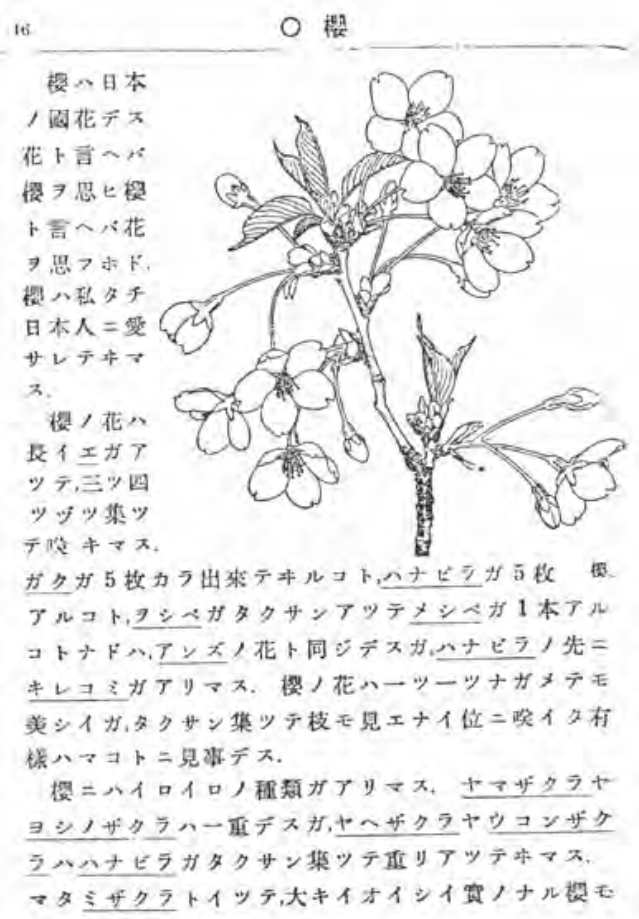 16
○ 櫻
櫻ハ日本
ノ國花デス
花ト言ヘバ
櫻ヲ思ヒ櫻
ト言ヘバ花
ヲ思フホド,
櫻ハ私タチ
日本人ニ愛
サレテヰマ
ス.
櫻ノ花ハ
長イエガア
ツテ,三ツ四
ツヅツ集ツ
テ咲キマス.
ガクガ5枚カラ出來テヰルコト,ハナビラガ5枚
櫻.
アルコト,ヲシベガタクサンアツテメシベガ1本アル
コトナドハ,アンズノ花ト同ジデスガ,ハナビラノ先ニ
キレコミガアリマス. 櫻ノ花ハ一ツ一ツナガメテモ
美シイガ,タクサン集ツテ枝モ見エナイ位ニ咲イタ有
樣ハマコトニ見事デス.
櫻ニハイロイロノ種類ガアリマス. ヤマザクラヤ
ヨシノザクラハ一重デスガ,ヤヘザクラヤウコンザク
ラハハナビラガタクサン集ツテ重リアツテヰマス.
マタミザクラトイツテ,大キイオイシイ實ノナル櫻モ